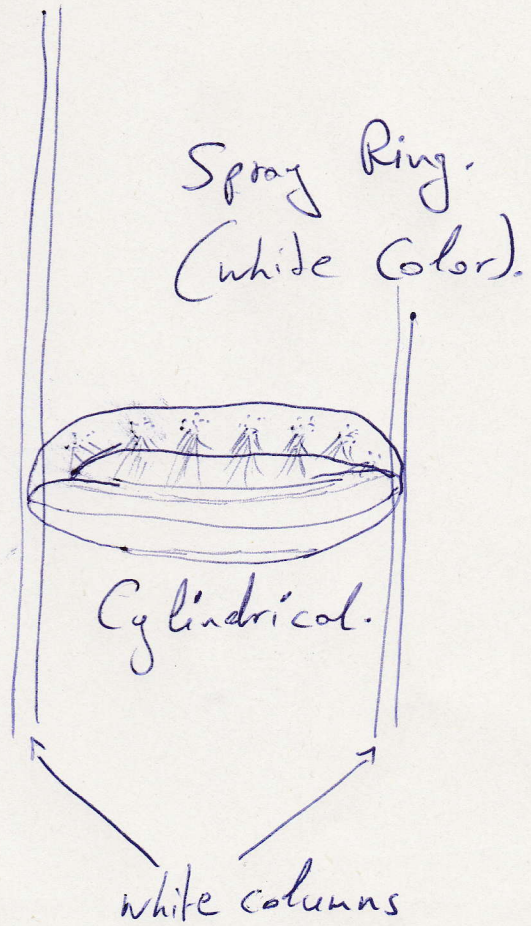 Spray Ring.
(white Color).
Cylindrical.
white columns